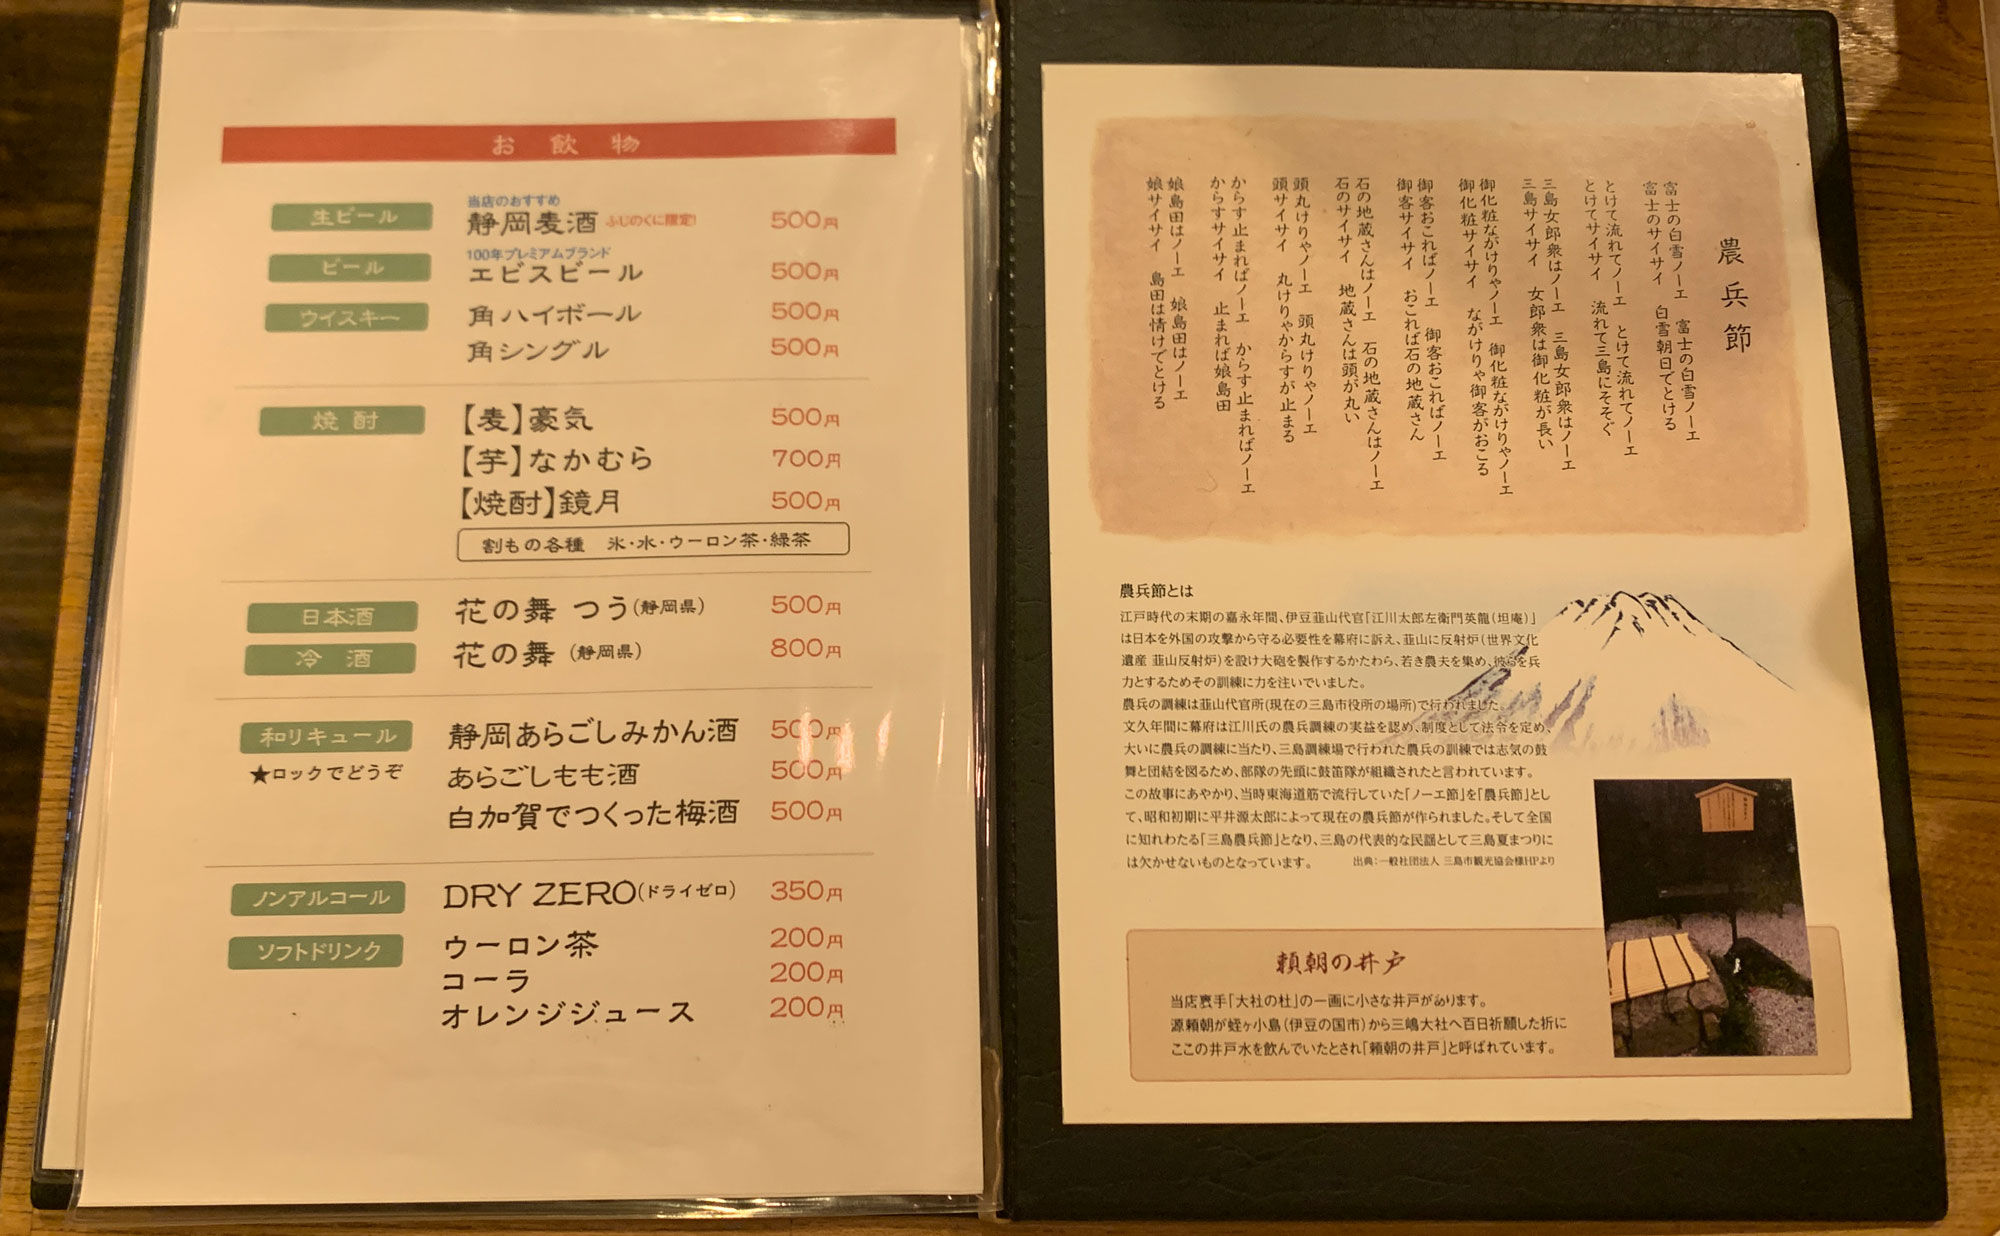 お飲物
生ビール
当店のおすすめ
静岡麦酒 ふじのくに限定! 500円
ビール
100年プレミアムブランド
エビスビール 500円
ウイスキー 角ハイボール 500円
角シングル 500円
焼酎 【麦】豪気 500円
【芋】なかむら 700円
【焼酎】鏡月 500円
割もの各種 氷・水・ウーロン茶・緑茶
日本酒 花の舞 つう(静岡県) 500円
冷酒 花の舞 (静岡県) 800円
和リキュール 静岡あらごしみかん酒 500円
★ロックでどうぞ あらごしもも酒 500円
白加賀でつくった梅酒 500円
ノンアルコール DRY ZERO(ドライゼロ) 350円
ソフトドリンク ウーロン茶 200円
コーラ 200円
オレンジジュース 200円
農兵節
富士の白雪ノーエ 富士の白雪ノーエ
富士のサイサイ 白雪朝日でとける
とけて流れてノーエ とけて流れてノーエ
とけてサイサイ 流れて三島にそそぐ
三島女郎衆はノーエ 三島女郎衆はノーエ
三島サイサイ 女郎衆は御化粧が長い
御化粧ながけりゃノーエ 御化粧ながけりゃノーエ
御化粧サイサイ ながけりゃ御客がおこる
御客おこればノーエ 御客おこればノーエ
御客サイサイ おこれば石の地蔵さん
石の地蔵さんはノーエ 石の地蔵さんはノーエ
石のサイサイ 地蔵さんは頭が丸い
頭丸けりゃノーエ 頭丸けりゃノーエ
頭サイサイ 丸けりゃからすが止まる
からす止まればノーエ からす止まればノーエ
からすサイサイ 止まれば娘島田
娘島田はノーエ 娘島田はノーエ
娘サイサイ 島田は情けでとける
農兵節とは
江戸時代の末期の嘉永年間、伊豆韮山代官「江川太郎左衛門英龍(坦庵)」
は日本を外国の攻撃から守る必要性を幕府に訴え、韮山に反射炉(世界文化
遺産 韮山反射炉)を設け大砲を製作するかたわら、若き農夫を集め、彼らを兵
力とするためその訓練に力を注いでいました。
農兵の調練は韮山代官所(現在の三島市役所の場所)で行われました。
文久年間に幕府は江川氏の農兵調練の実益を認め、制度として法令を定め、
大いに農兵の調練に当たり、三島調練場で行われた農兵の訓練では志気の鼓
舞と団結を図るため、部隊の先頭に鼓笛隊が組織されたと言われています。
この故事にあやかり、当時東海道筋で流行していた「ノーエ節」を「農兵節」とし
て、昭和初期に平井源太郎によって現在の農兵節が作られました。そして全国
に知れわたる「三島農兵節」となり、三島の代表的な民謡として三島夏まつりに
は欠かせないものとなっています。 出典:一般社団法人 三島市観光協会様HPより
頼朝の井戸
当店裏手「大社の杜」の一画に小さな井戸があります。
源頼朝が蛭ヶ小島(伊豆の国市)から三嶋大社へ百日祈願した折に
ここの井戸水を飲んでいたとされ「頼朝の井戸」と呼ばれています。